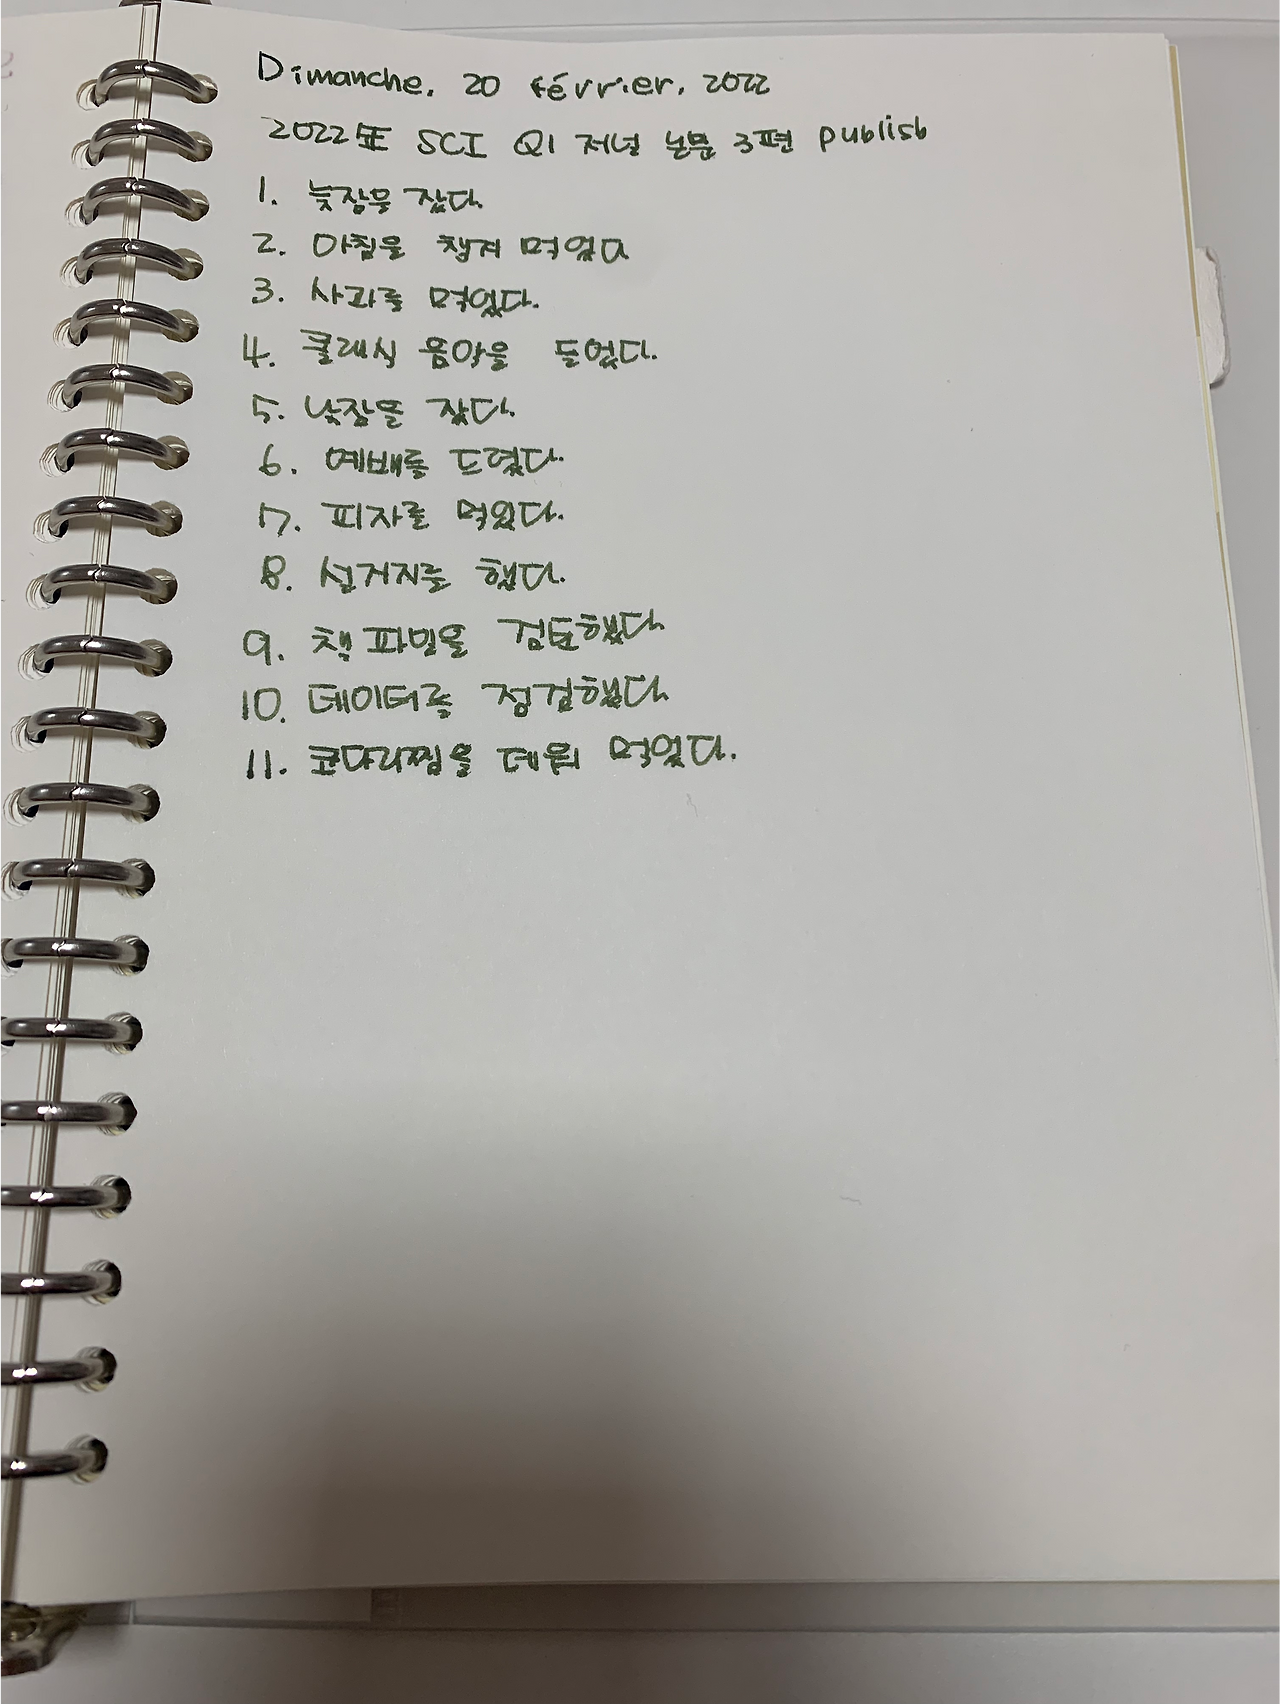 Dimanche, 20 février, 2022
2022年 SCI Q1 저널 논문 3편 publish
1. 늦잠을 잤다.
2. 아침을 챙겨 먹었다
3. 사과를 먹었다.
4. 클래식 음악을 들었다.
5. 낮잠을 잤다.
6. 예배를 드렸다.
7. 피자를 먹었다.
8. 설거지를 했다.
9. 책 파일을 검토했다.
10. 데이터를 점검했다.
11. 코다리찜을 데워 먹었다.